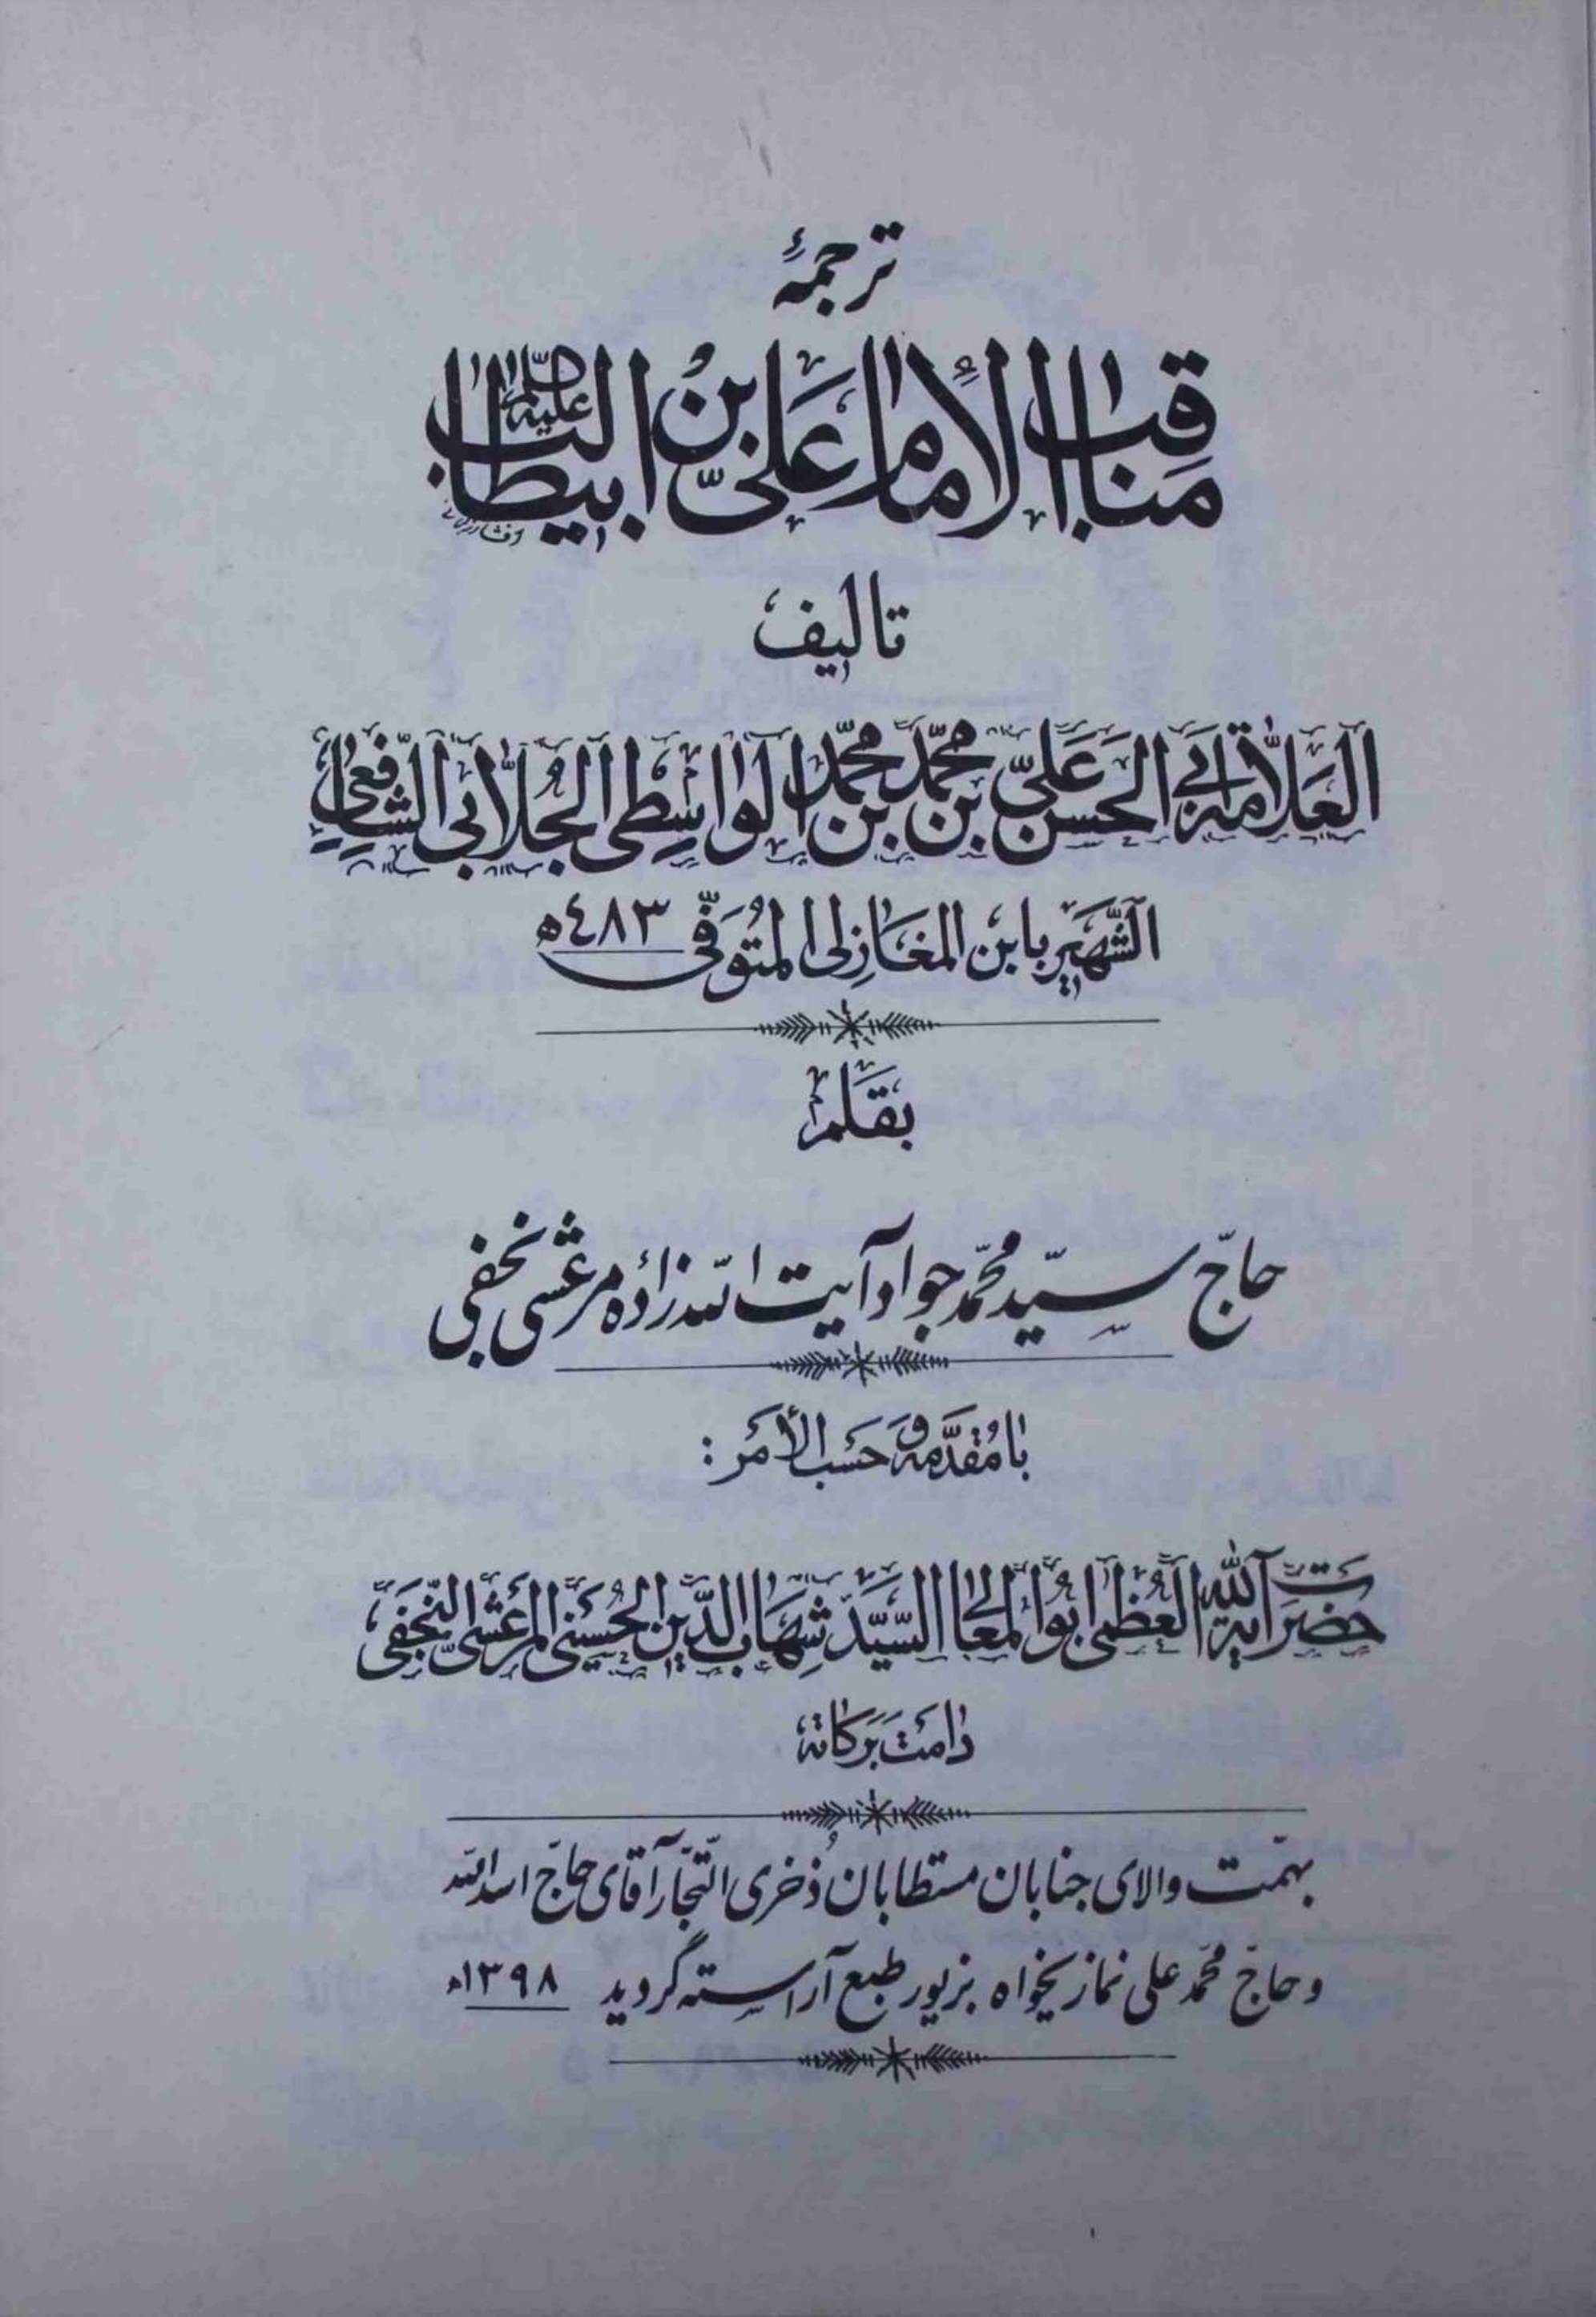 ترجمهٔ
مناقب الإمام علیّ بن ابیطالب علیه السّلام
تالیف
العلّامة أبی الحسن علیّ بن محمّد بن محمّد الواسطی الجُلّابی الشّافعی
الشّهیر بابن المغازلی المتوفّی ٤٨٣ه
بقلم
حاجّ سیّد محمّد جواد آیت اللّه زادهٔ مرعشی نجفی
با مقدّمه و حسب الأمر :
حضرت آیة اللّه العظمی ابوالمعالی السیّد شهاب الدّین الحسینی المرعشی النّجفی
دامت برکاته
بهمّت والای جنابان مستطابان ذُخری التّجّار آقای حاجّ اسداللّه
و حاجّ محمّد علی نمازیخواه بزیور طبع آراسته گردید ١٣٩٨ه